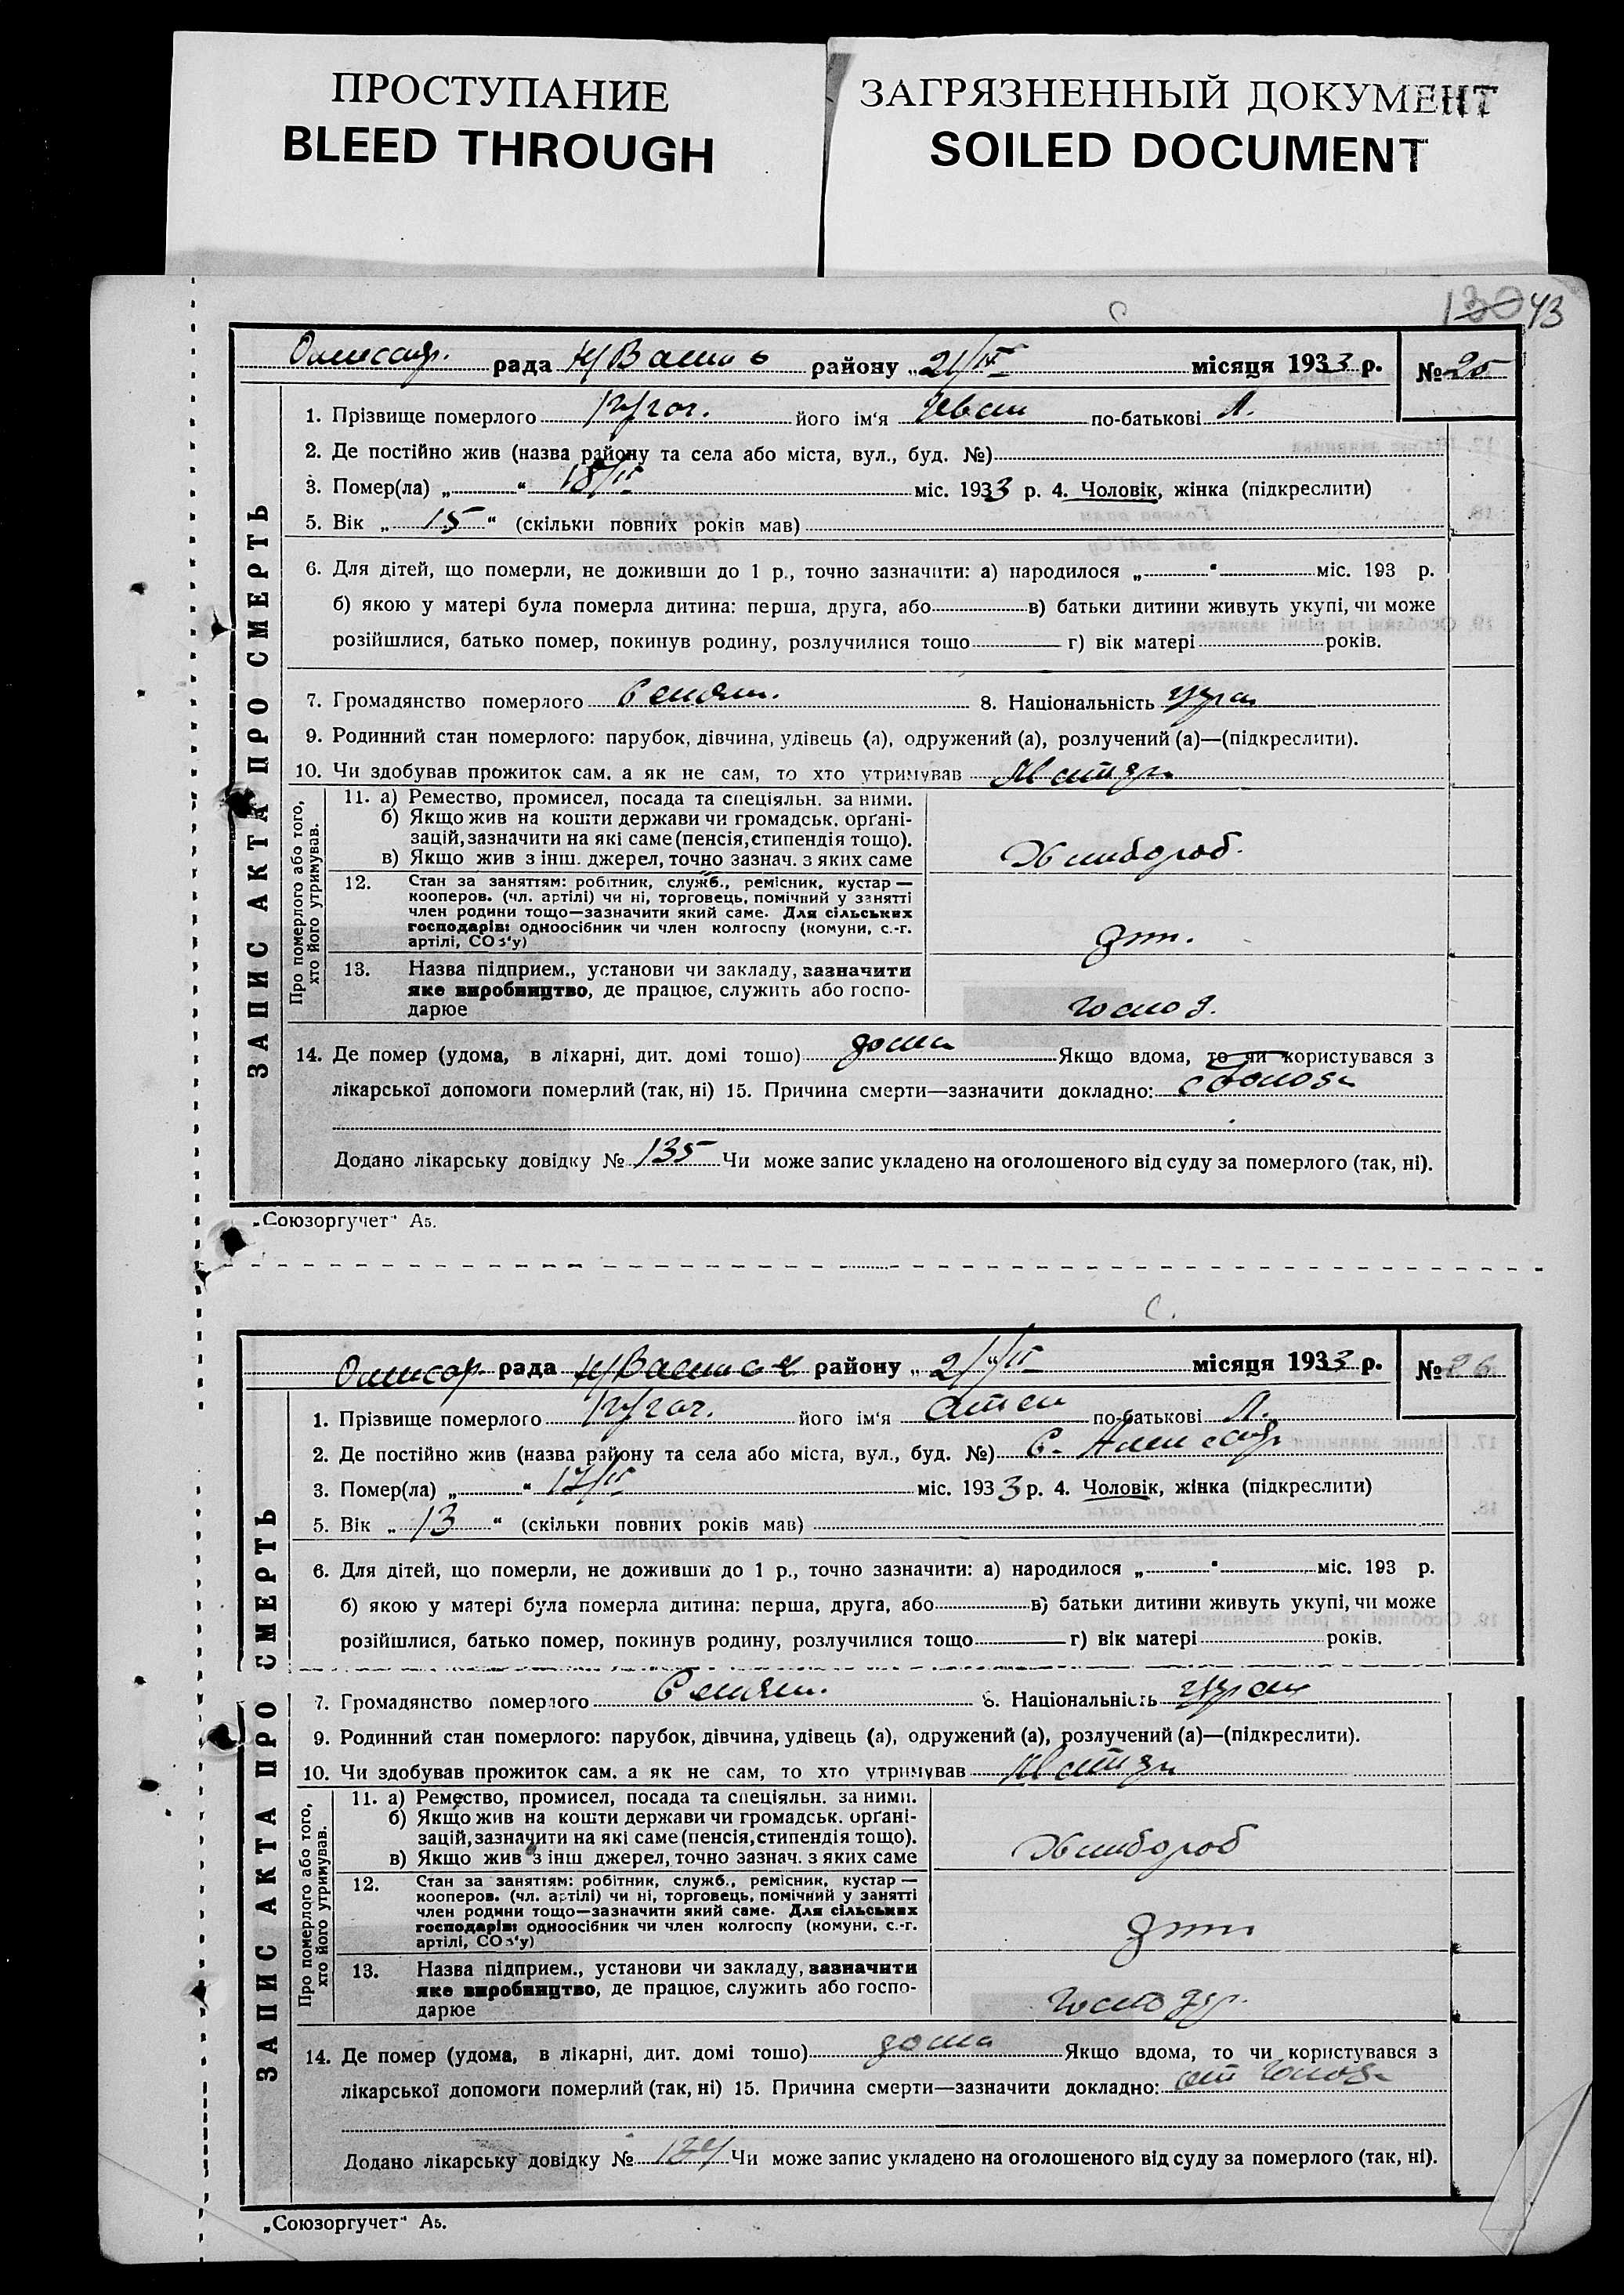 ПРОСТУПАНИЕ
BLEED THROUGH
ЗАГРЯЗНЕННЫЙ ДОКУМЕНТ
SOILED DOCUMENT
130 43
рада района району „ 21/IV місяця 1933 р. № 25
ЗАПИС АКТА ПРО СМЕРТЬ
1. Прізвище померлого його ім'я Иван по-батькові Л.
2. Де постійно жив (назва району та села або міста, вул., буд. №)
3. Помер(ла) „ “ 18/IV міс. 1933 р. 4. Чоловік, жінка (підкреслити)
5. Вік „ 15 “ (скільки повних років мав)
6. Для дітей, що померли, не доживши до 1 р., точно зазначити: а) народилося „ “ міс. 193 р.
б) якою у матері була померла дитина: перша, друга, або в) батьки дитини живуть укупі, чи може
розійшлися, батько помер, покинув родину, розлучилися тощо г) вік матері років.
7. Громадянство померлого 8. Національність укр
9. Родинний стан померлого: парубок, дівчина, удівець (а), одружений (а), розлучений (а)—(підкреслити).
10. Чи здобував прожиток сам, а як не сам, то хто утримував
Про померлого або того, хто його утримував.
11. а) Ремество, промисел, посада та спеціяльн. за ними.
б) Якщо жив на кошти держави чи громадськ. орґані-
зацій, зазначити на які саме (пенсія, стипендія тощо).
в) Якщо жив з інш. джерел, точно зазнач. з яких саме
Хлибороб.
12. Стан за заняттям: робітник, служб., ремісник, кустар —
кооперов. (чл. артілі) чи ні, торговець, помічний у занятті
член родини тощо—зазначити який саме. Для сільських
господарів: одноосібник чи член колгоспу (комуни, с.-г.
артілі, СОЗ'у)
13. Назва підприєм., установи чи закладу, зазначити
яке виробництво, де працює, служить або госпо-
дарює
14. Де помер (удома, в лікарні, дит. домі тощо) дома Якщо вдома, то чи користувався з
лікарської допомоги померлий (так, ні) 15. Причина смерти—зазначити докладно:
Додано лікарську довідку № 135 Чи може запис укладено на оголошеного від суду за померлого (так, ні).
„Союзоргучет“ А5.
рада району „ 21/IV місяця 1933 р. № 26
ЗАПИС АКТА ПРО СМЕРТЬ
1. Прізвище померлого його ім'я по-батькові Л.
2. Де постійно жив (назва району та села або міста, вул., буд. №) с.
3. Помер(ла) „ “ 17/IV міс. 1933 р. 4. Чоловік, жінка (підкреслити)
5. Вік „ 13 “ (скільки повних років мав)
6. Для дітей, що померли, не доживши до 1 р., точно зазначити: а) народилося „ “ міс. 193 р.
б) якою у матері була померла дитина: перша, друга, або в) батьки дитини живуть укупі, чи може
розійшлися, батько помер, покинув родину, розлучилися тощо г) вік матері років.
7. Громадянство померлого 8. Національність
9. Родинний стан померлого: парубок, дівчина, удівець (а), одружений (а), розлучений (а)—(підкреслити).
10. Чи здобував прожиток сам, а як не сам, то хто утримував
Про померлого або того, хто його утримував.
11. а) Ремество, промисел, посада та спеціяльн. за ними.
б) Якщо жив на кошти держави чи громадськ. орґані-
зацій, зазначити на які саме (пенсія, стипендія тощо).
в) Якщо жив з інш джерел, точно зазнач. з яких саме
Хлибороб
12. Стан за заняттям: робітник, служб., ремісник, кустар —
кооперов. (чл. артілі) чи ні, торговець, помічний у занятті
член родини тощо—зазначити який саме. Для сільських
господарів: одноосібник чи член колгоспу (комуни, с.-г.
артілі, СОЗ'у)
13. Назва підприєм., установи чи закладу, зазначити
яке виробництво, де працює, служить або госпо-
дарює
14. Де помер (удома, в лікарні, дит. домі тощо) дома Якщо вдома, то чи користувався з
лікарської допомоги померлий (так, ні) 15. Причина смерти—зазначити докладно: от голода
Додано лікарську довідку № Чи може запис укладено на оголошеного від суду за померлого (так, ні).
„Союзоргучет“ А5.